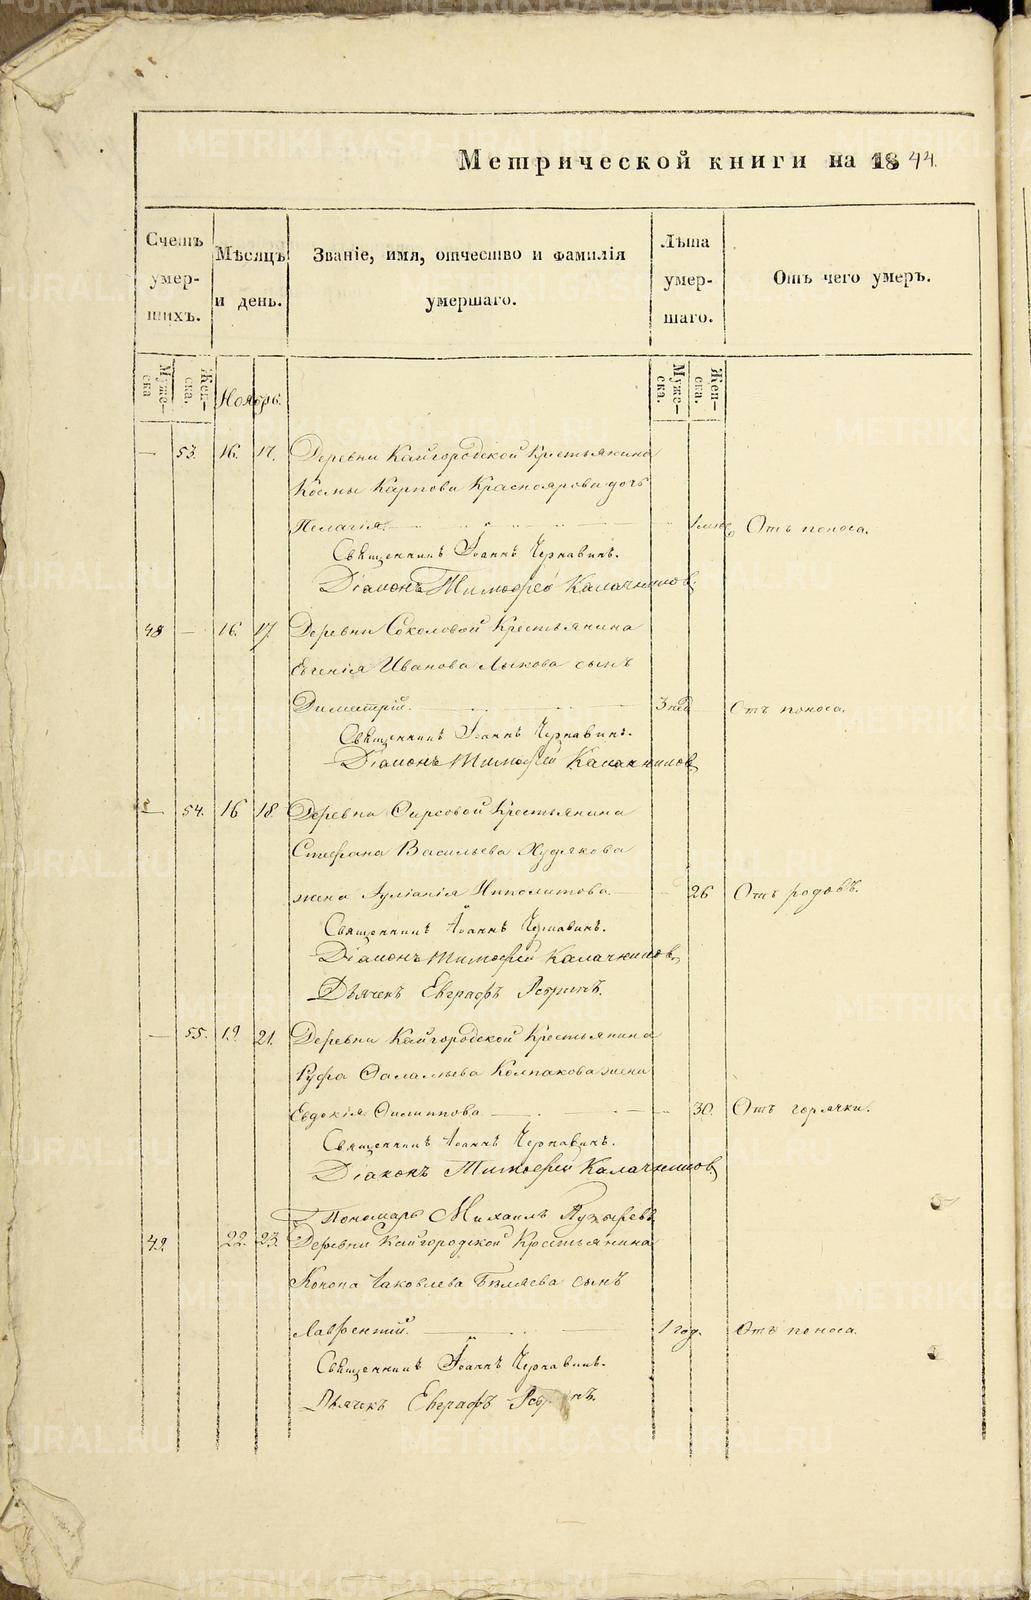 Метрической книги на 1844.
Счетъ умершихъ.
Мѣсяцъ и день.
Званіе, имя, отчество и фамилія умершаго.
Лѣта умершаго.
Отъ чего умеръ.
Мужеска
Женска.
Ноябрь.
Мужеска.
Женска.
— 53. 16. 17. Деревни Кайгородской Крестьянина
Космы Карпова Красноярова дочь
Пелагія. Отъ поноса.
Священникъ Іоаннъ Чернавинъ.
Діаконъ Тимофей Калачниковъ
48 — 16. 17. Деревни Соколовой Крестьянина
Евгенія Иванова Лыкова сынъ
Димитрій. 3 нед Отъ поноса.
Священникъ Іоаннъ Чернавинъ.
Діаконъ Тимофей Калачниковъ
— 54. 16 18. Деревни Фирсовой Крестьянина
Стефана Васильева Худякова
жена Іуліанія Ипполитова. 26 Отъ родовъ.
Священникъ Іоаннъ Чернавинъ.
Діаконъ Тимофей Калачниковъ
Дьячекъ Евграфъ
— 55. 19. 21. Деревни Кайгородской Крестьянина
Руфа Фалалѣева Колпакова жена
Евдокія Филиппова 30. Отъ горячки.
Священникъ Іоаннъ Чернавинъ.
Діаконъ Тимофей Калачниковъ
Пономарь Михаилъ Пузыревъ
49. 22. 23. Деревни Кайгородской Крестьянина
Конона Іаковлева Бѣляева сынъ
Лаврентій. 1 год. Отъ поноса.
Священникъ Іоаннъ Чернавинъ.
Дьячекъ Евграфъ
METRIKI.GASO-URAL.RU